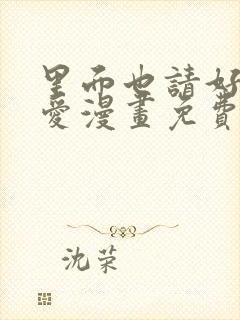 里面也請好
愛漫畫免費
沈荣